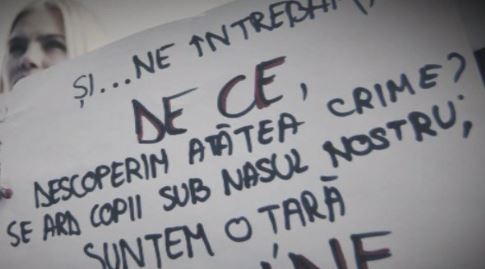 ȘI...NE ÎNTREBĂM,
DE CE,
DESCOPERIM ATÂTEA CRIME?
SE ARD COPII SUB NASUL NOSTRU;
SUNTEM O TARĂ